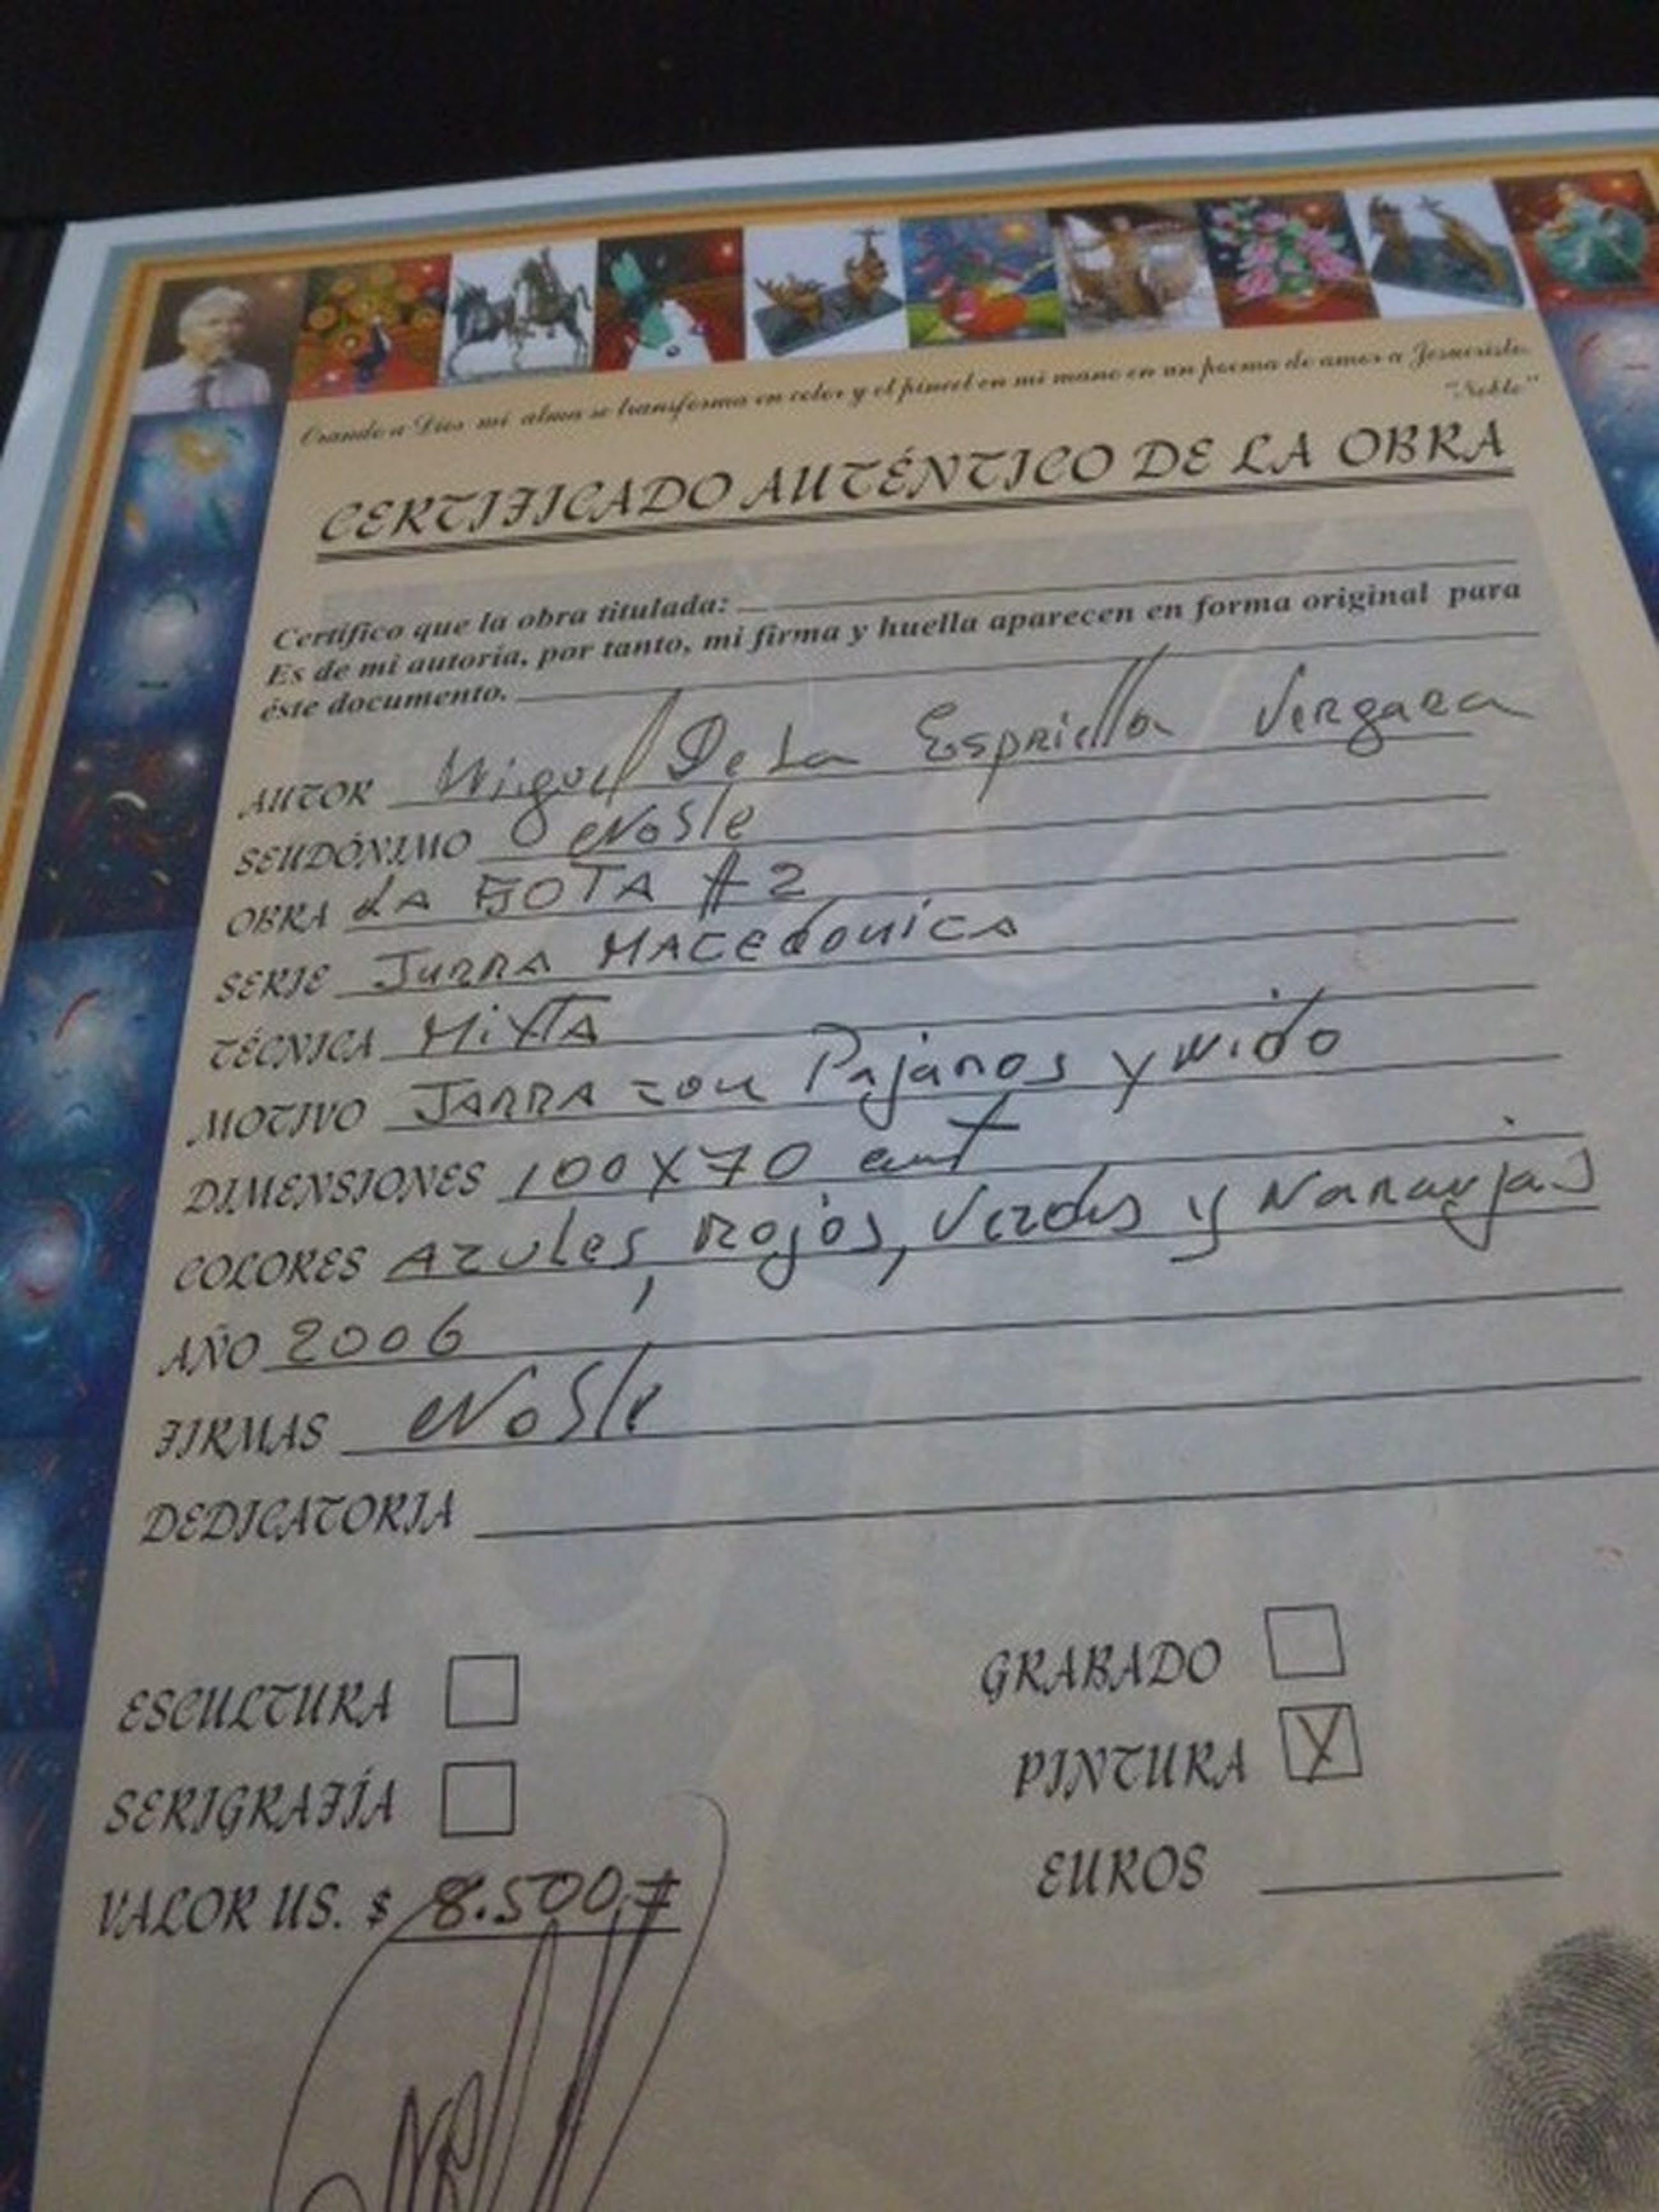 Orando a Dios mi alma se transforma en color y el pincel en mi mano en un poema de amor a Jesucristo.
"Noble"
CERTIFICADO AUTÉNTICO DE LA OBRA
Certifico que la obra titulada:
Es de mi autoria, por tanto, mi firma y huella aparecen en forma original para
éste documento.
AUTOR Miguel De La Espriella Vergara
SEUDÓNIMO Noble
OBRA LA GOTA #2
SERIE JARRA MACEDONICA
TÉCNICA MIXTA
MOTIVO JARRA con Pajaros y nido
DIMENSIONES 100X70
COLORES AZULES, Rojos, Verdes y Naranjas
AÑO 2006
FIRMAS Noble
DEDICATORIA
ESCULTURA GRABADO
SERIGRAFÍA PINTURA X
VALOR US. $ 8.500 EUROS